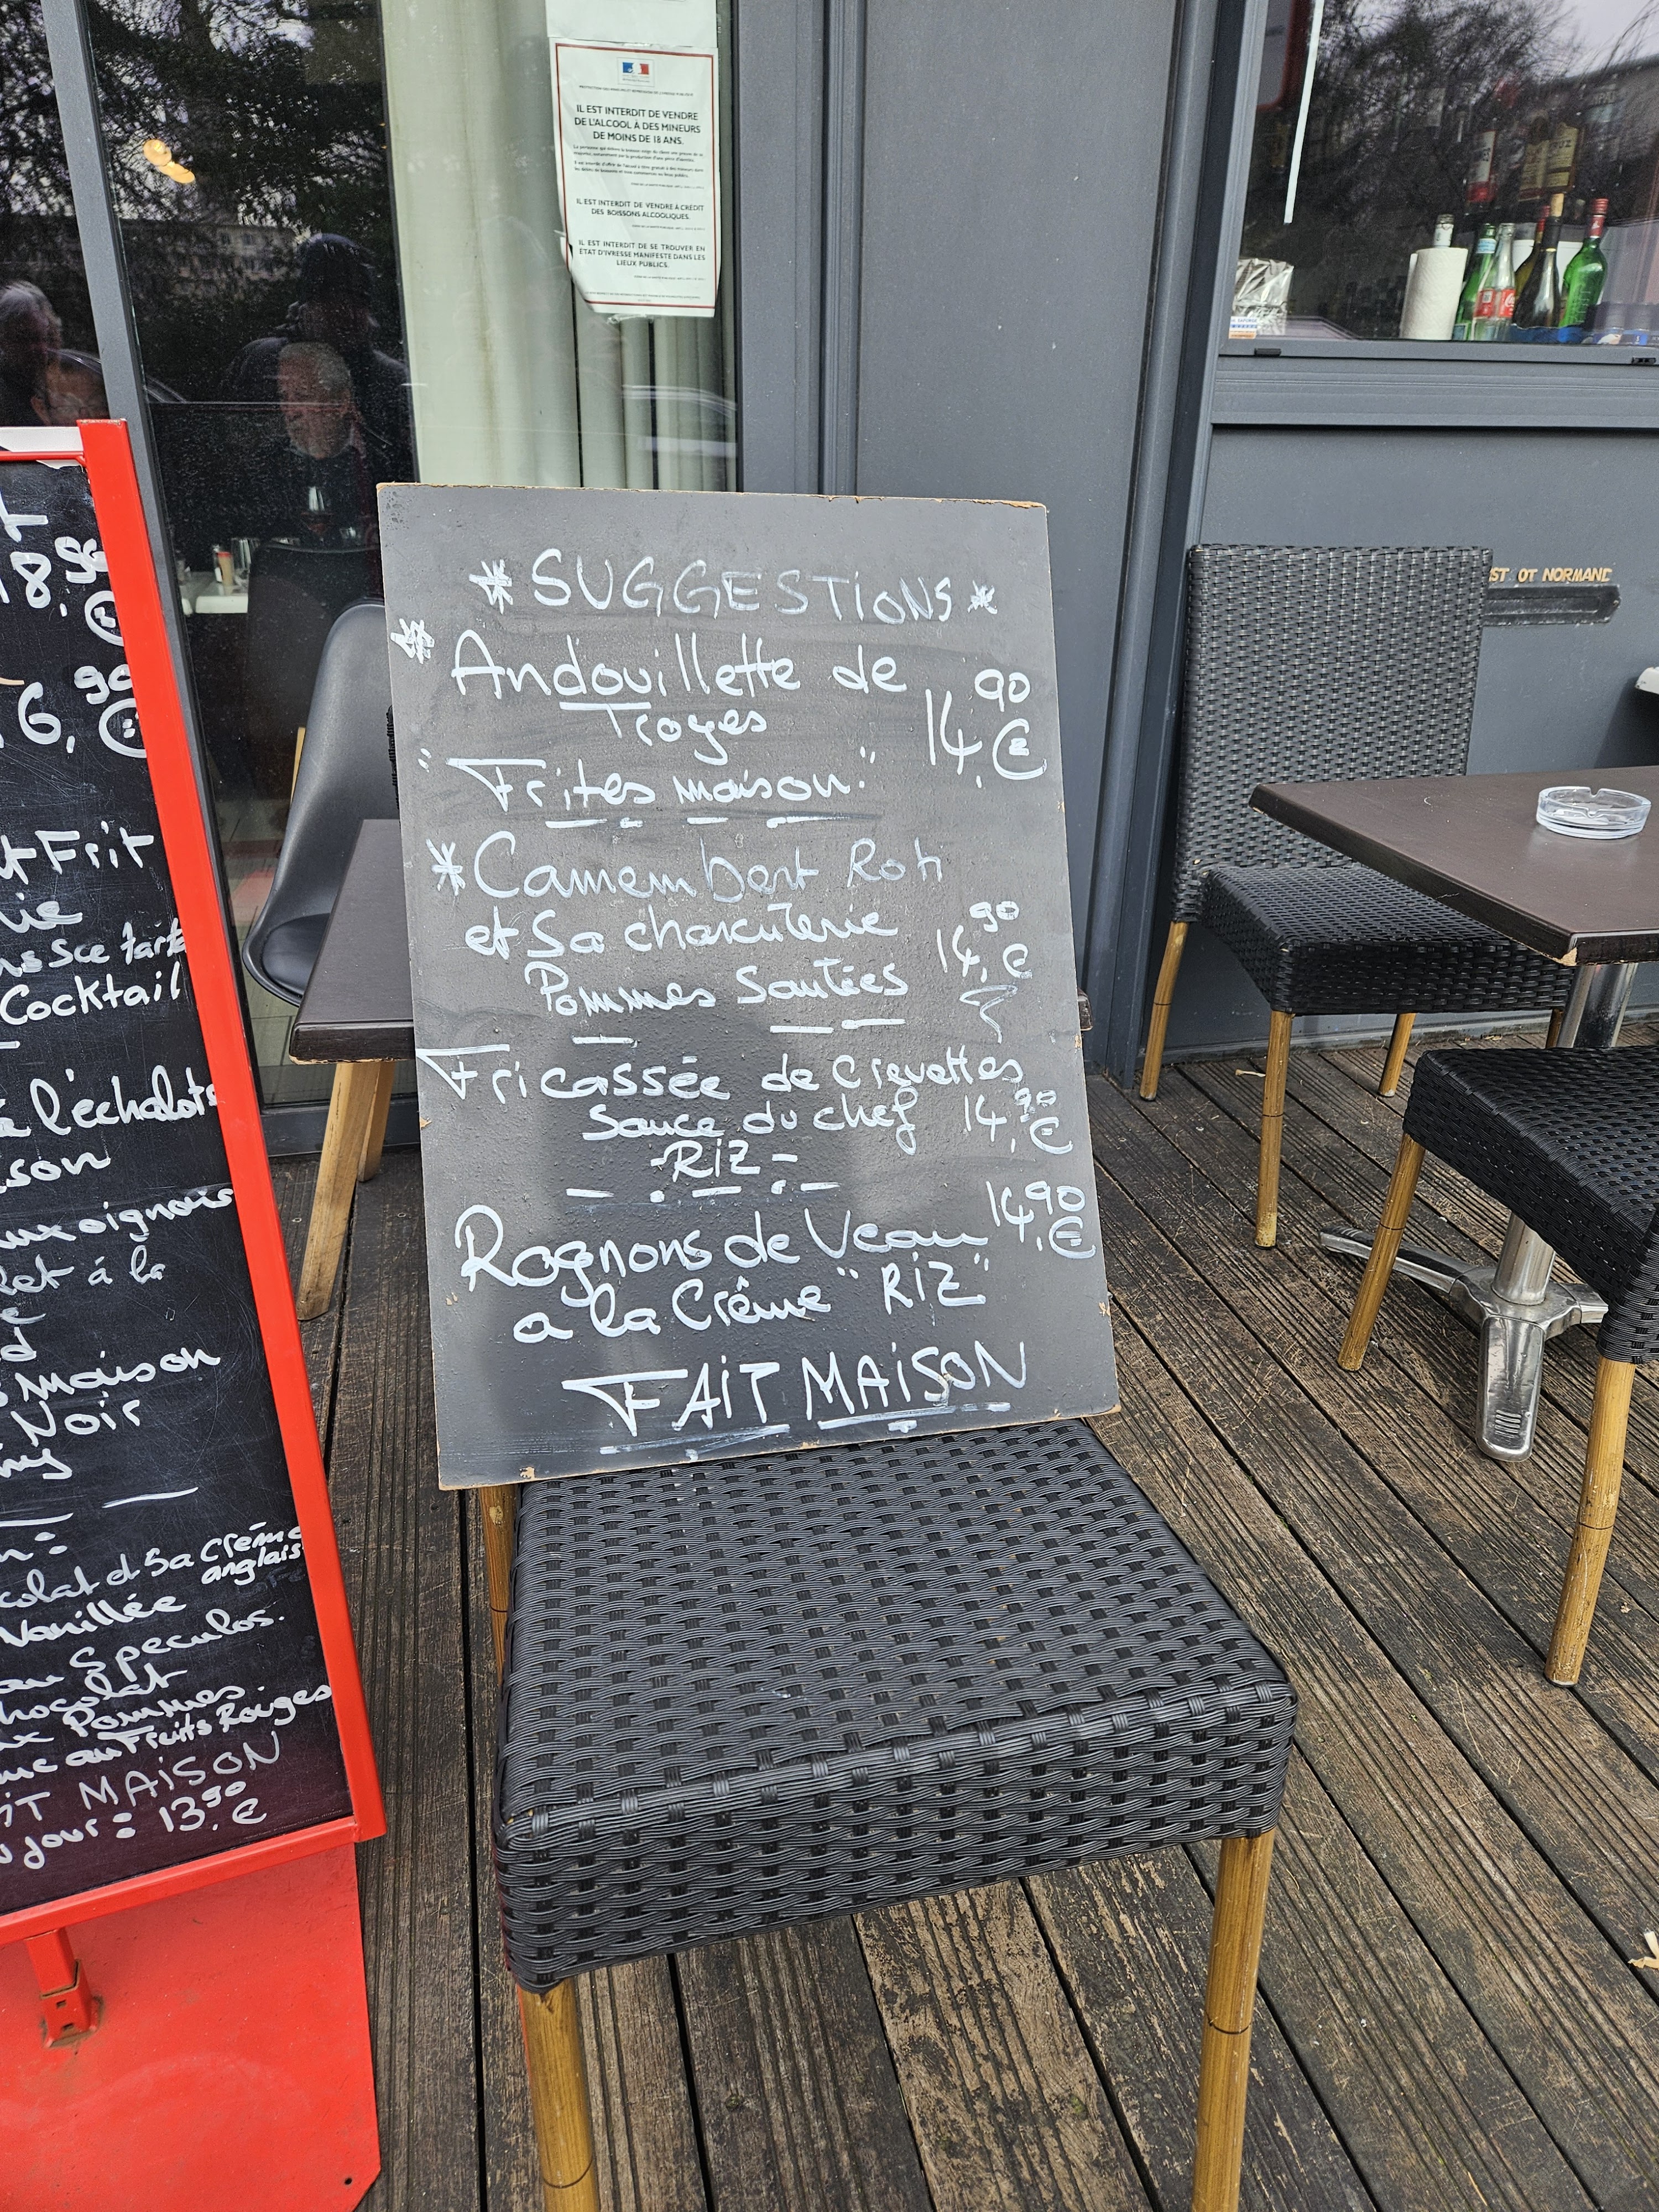 IL EST INTERDIT DE VENDRE
DE L'ALCOOL À DES MINEURS
DE MOINS DE 18 ANS.
IL EST INTERDIT DE VENDRE À CRÉDIT
DES BOISSONS ALCOOLIQUES.
IL EST INTERDIT DE SE TROUVER EN
ÉTAT D'IVRESSE MANIFESTE DANS LES
LIEUX PUBLICS.
*SUGGESTIONS*
* Andouillette de
Troyes 14,90 €
"Frites maison."
*Camembert Roti
et Sa charcuterie
Pommes Sautées 14,90 €
Fricassée de Crevettes
Sauce du chef 14,90 €
-RIZ-
Rognons de Veau 14,90 €
a la Crême "RIZ"
FAIT MAISON
18,90 €
6,90 €
Frit
sce tart
Cocktail
l'échalote
aux oignons
à la
maison
Noir
et Sa Crème
anglais
Vanillée
au Speculos.
Pommes.
au Fruits Rouges
MAISON
jour : 13,90 €
OT NORMAND